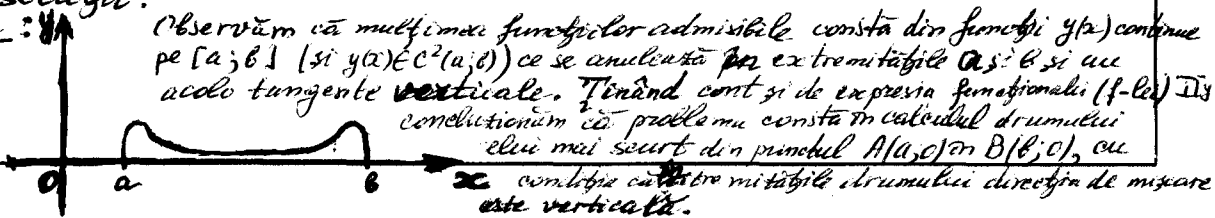 Observăm că mulțimea funcțiilor admisibile constă din funcții y(x) continue
pe [a;b] (și y(x)∈C²(a;b)) ce se anulează în extremitățile a și b și au
acolo tangente verticale. Ținând cont și de expresia funcționalei (f-lei)
concluzionăm că problema constă în calculul drumului
celui mai scurt din punctul A(a,0) în B(b;0), cu
condiția ca extremitățile drumului direcția de mișcare
este verticală.
y
0 a b x